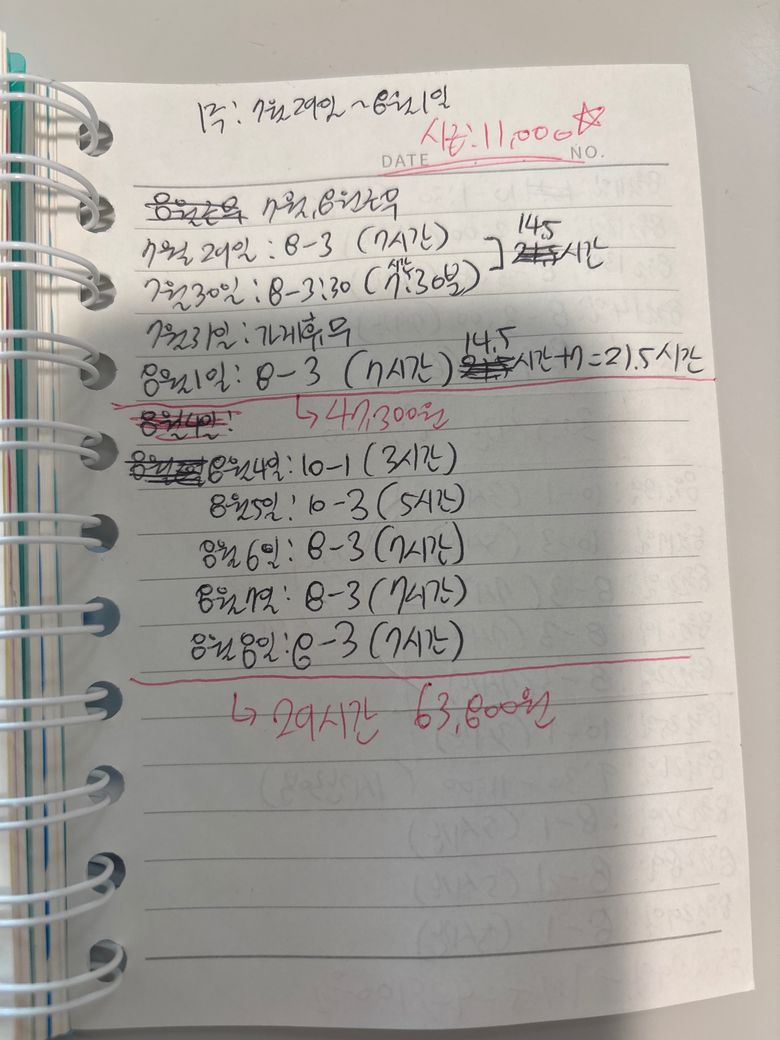 1주: 7월 29일 ~ 8월 1일
시급: 11,000☆
DATE NO.
7월, 8월 근무
7월 29일 : 8-3 (7시간) ] 14.5 시간
7월 30일 : 8-3:30 (7시간:30분)
7월 31일 : 가게휴무
8월 1일 : 8-3 (7시간) 14.5 시간+7=21.5시간
8월 4일:
↳ 47,300원
8월 4일: 10-1 (3시간)
8월 5일: 10-3 (5시간)
8월 6일: 8-3 (7시간)
8월 7일: 8-3 (7시간)
8월 8일: 8-3 (7시간)
↳ 29시간 63,800원